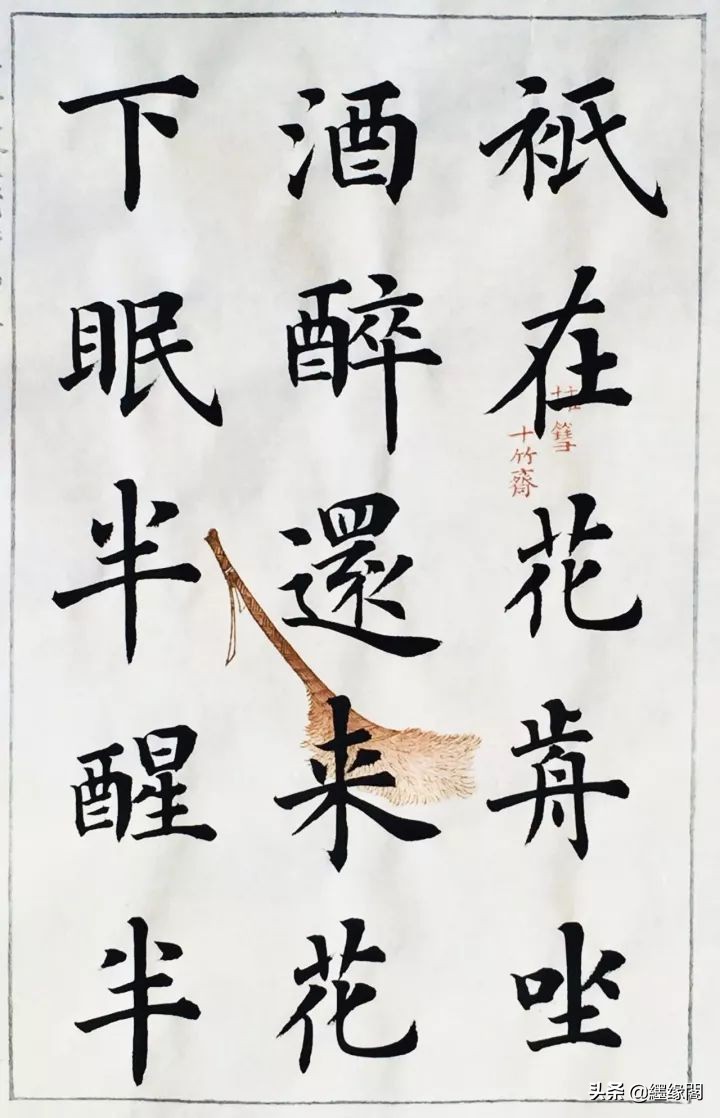 衹在花歬坐
酒醉還来花
下眠半醒半
篲
十竹齋
头条 @纆缘閣